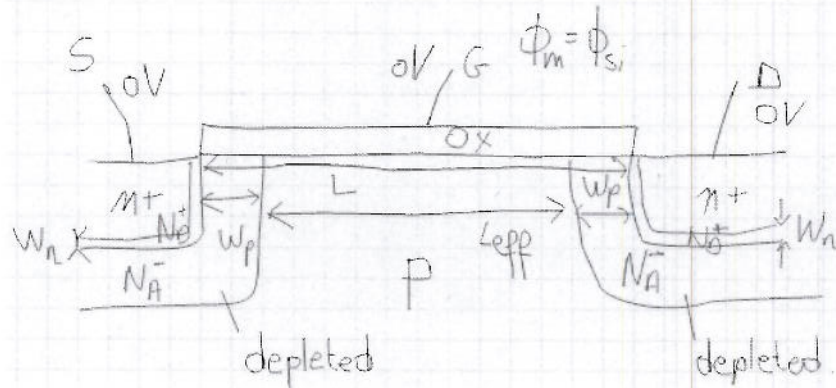 S 0V 0V G ϕm = ϕsi D 0V
OX
L Wp
n+ n+
Wn ND+ Wp Leff ND+ Wn
NA- P NA-
depleted depleted